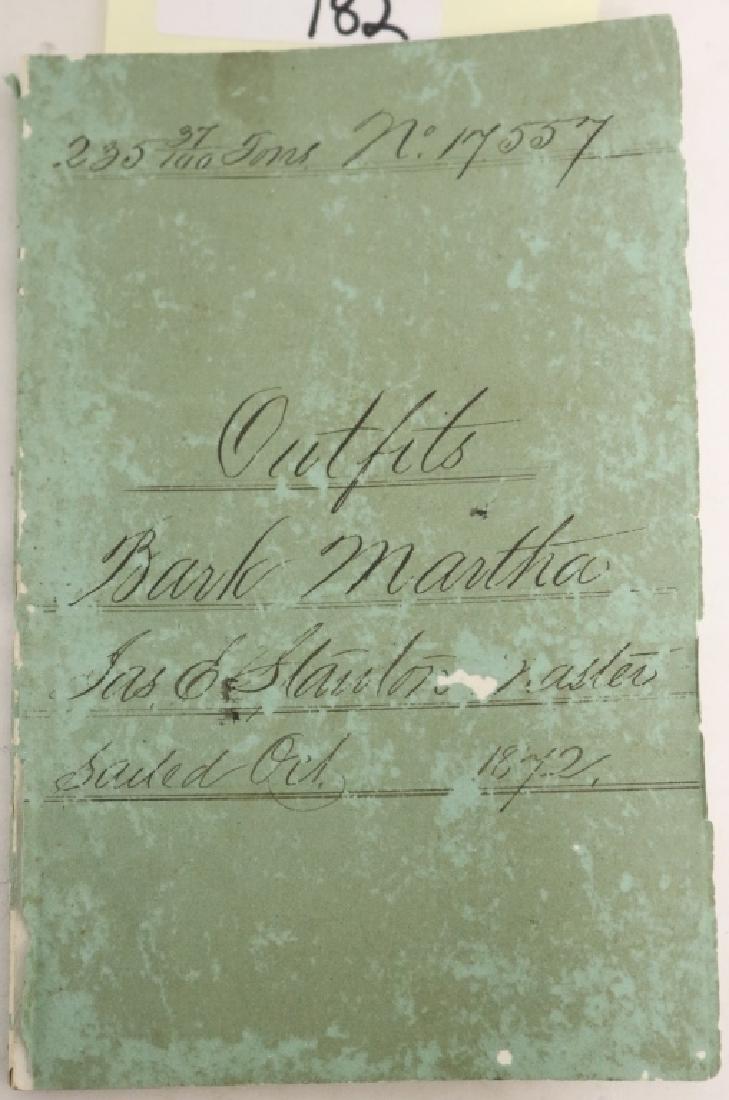 182
235 37/100 Tons No. 17557
Outfits
Bark Martha
Jas. E. Stanton Master
Sailed Oct. 1872.